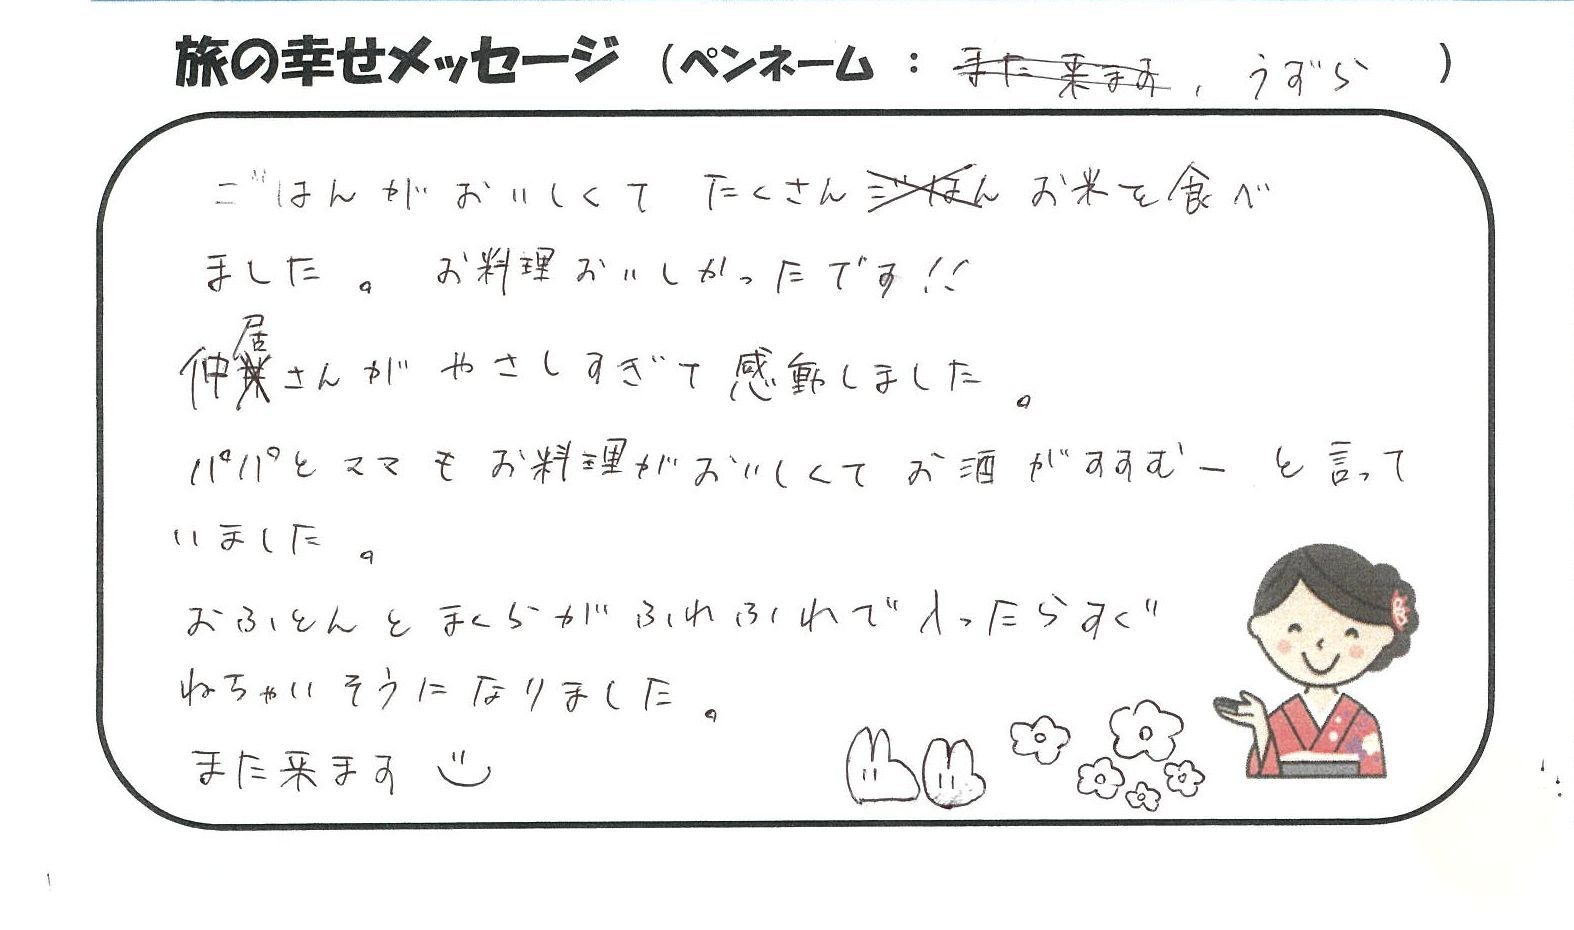 旅の幸せメッセージ (ペンネーム : また来ます, うずら )
ごはんがおいしくて たくさん ごはん お米を食べ
ました。 お料理おいしかったです!!
仲居さんが やさしすぎて 感動しました。
パパとママも お料理がおいしくて お酒がすすむー と言って
いました。
おふとんと まくらが ふわふわで 入ったらすぐ
ねちゃいそうに なりました。
また来ます